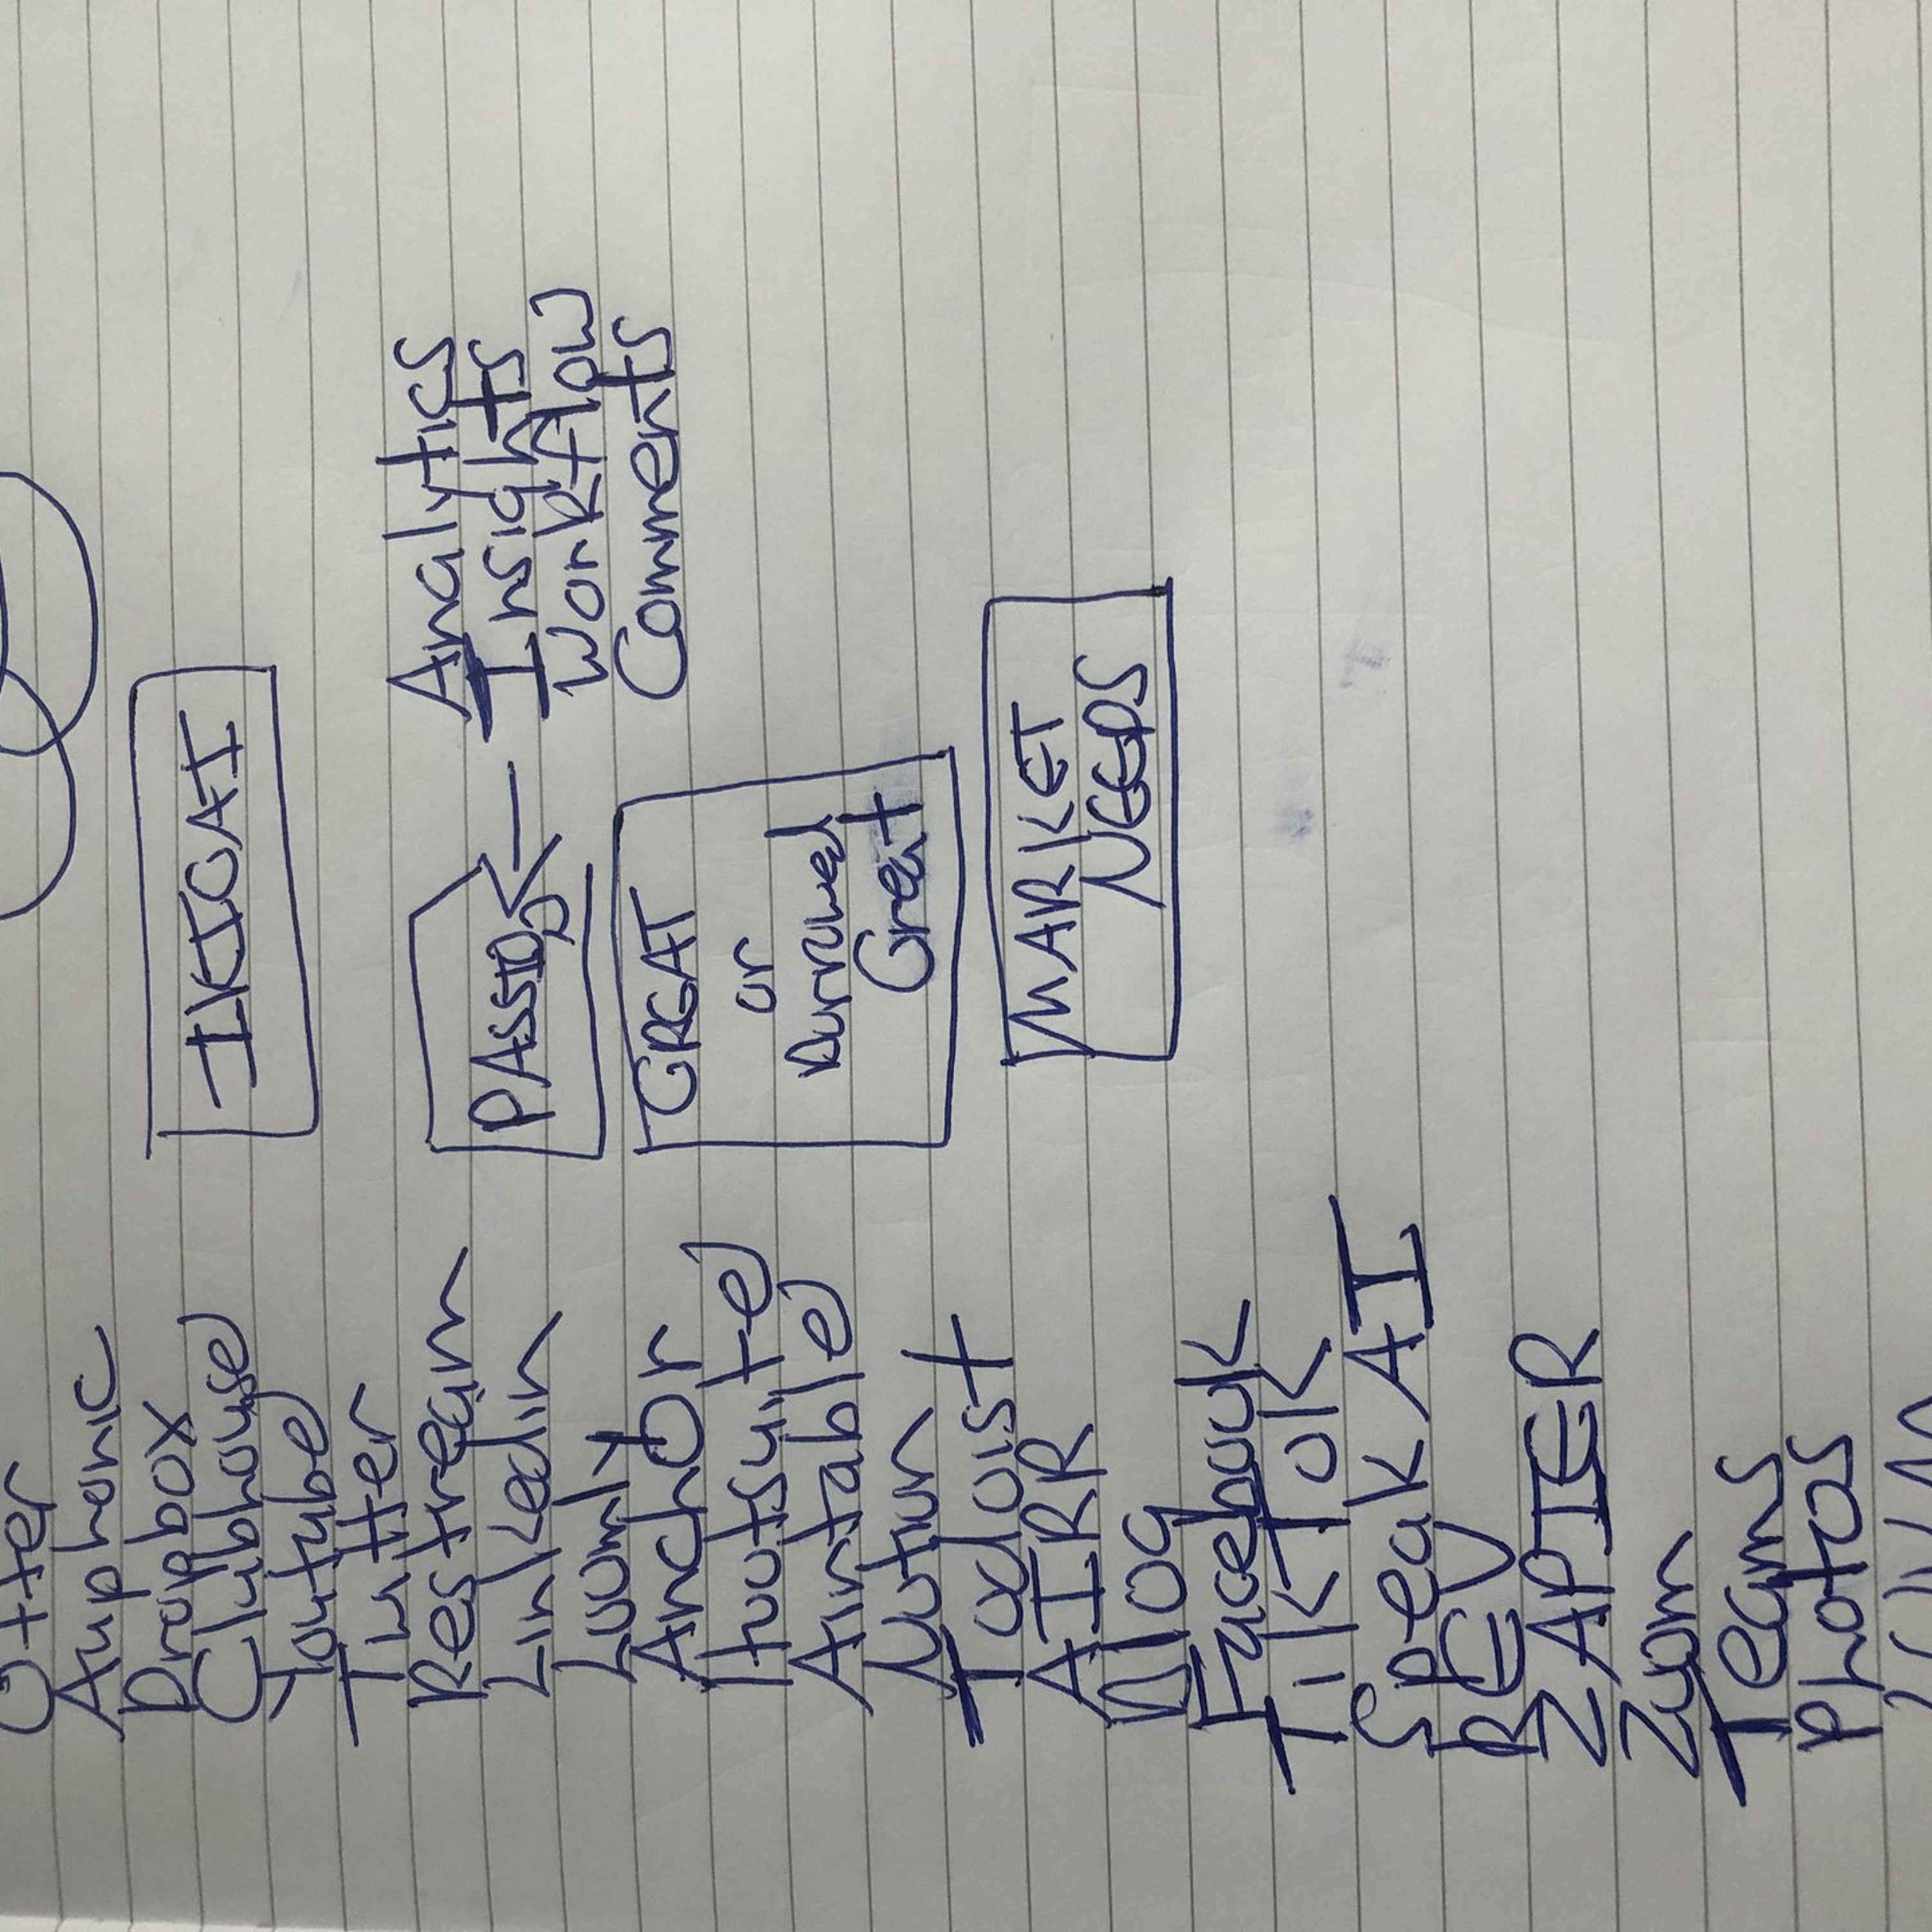 Otter
Auphonic
Dropbox
Clubhouse
Youtube
Twitter
Restream
Linkedin
Loomly
Anchor
Hootsuite
Airtable
Notion
Todoist
AIRR
Milog
Facebook
TikTok
Speak AI
REV
ZAPIER
Zoom
Teams
Photos
IKIGAI
PASSION
GREAT
or
Borrowed
Great
MARKET
NEEDS
Analytics
Insights
Workflow
Comments